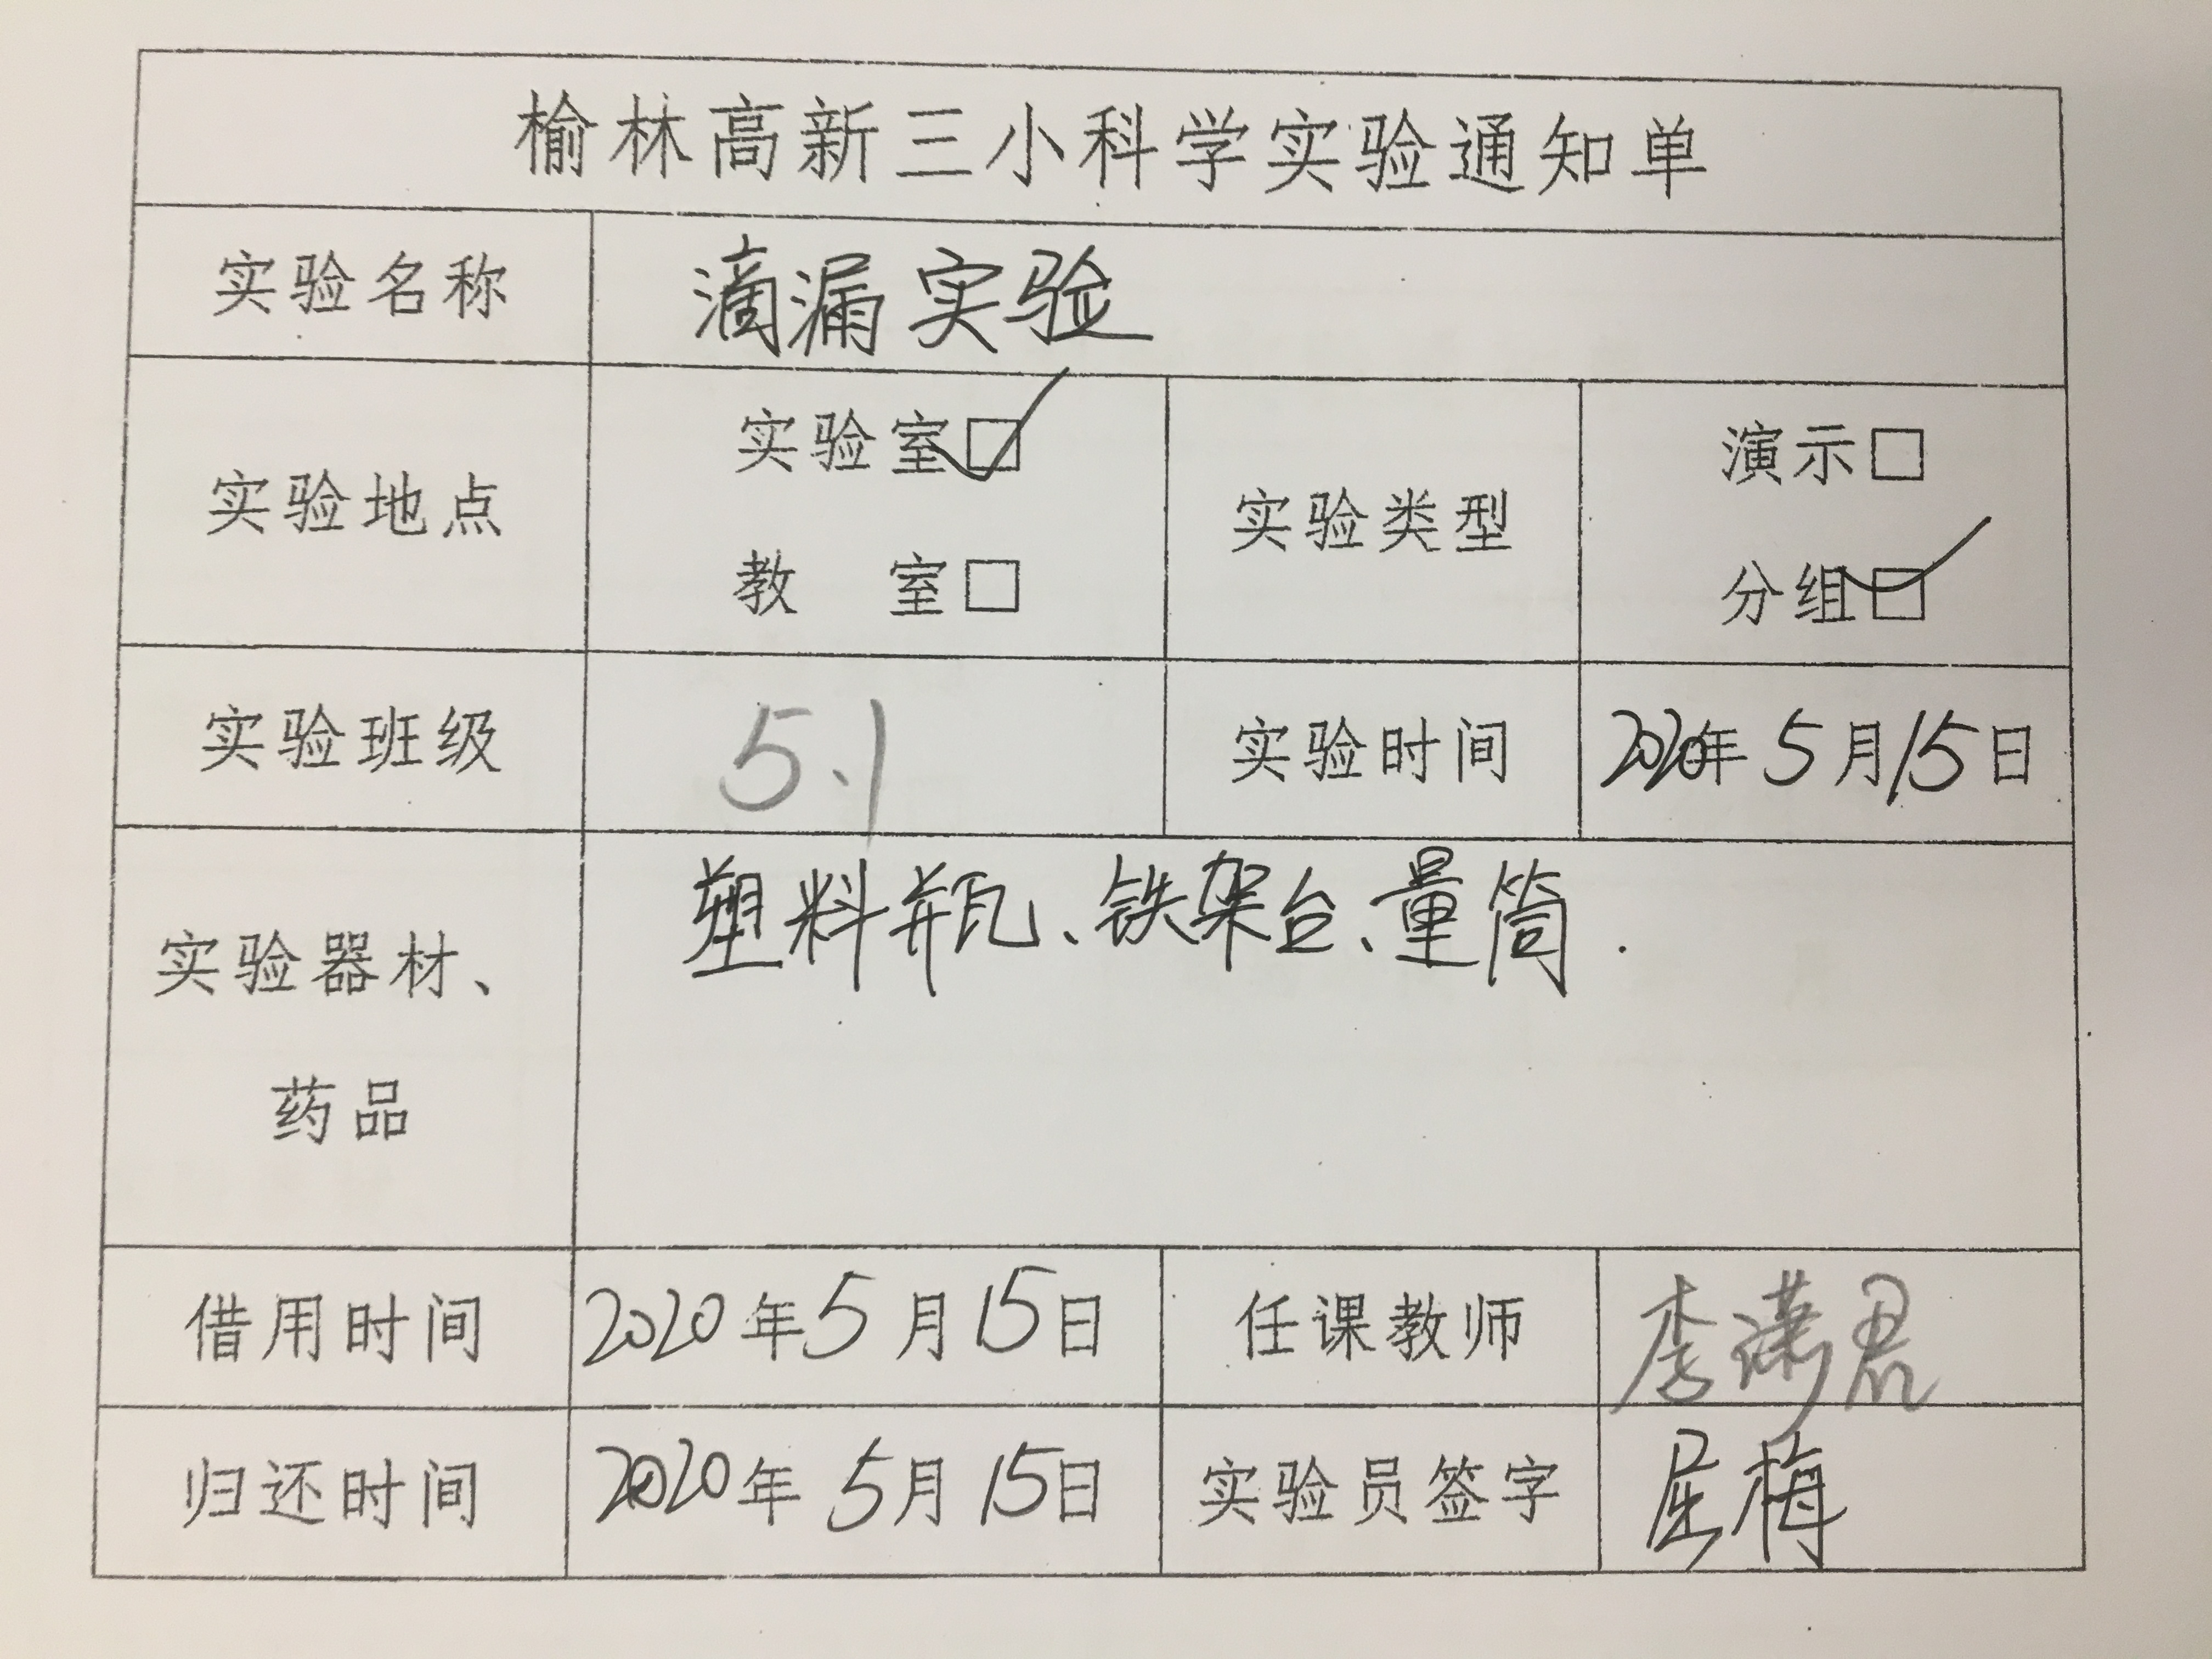 榆林高新三小科学实验通知单
实验名称 滴漏实验
实验室☑
教 室□
实验地点
实验类型
演示□
分组☑
实验班级 5.1 实验时间 2020年5月15日
实验器材、
药品
塑料瓶、铁架台、量筒.
借用时间 2020年5月15日 任课教师 李潇君
归还时间 2020年5月15日 实验员签字 屈梅